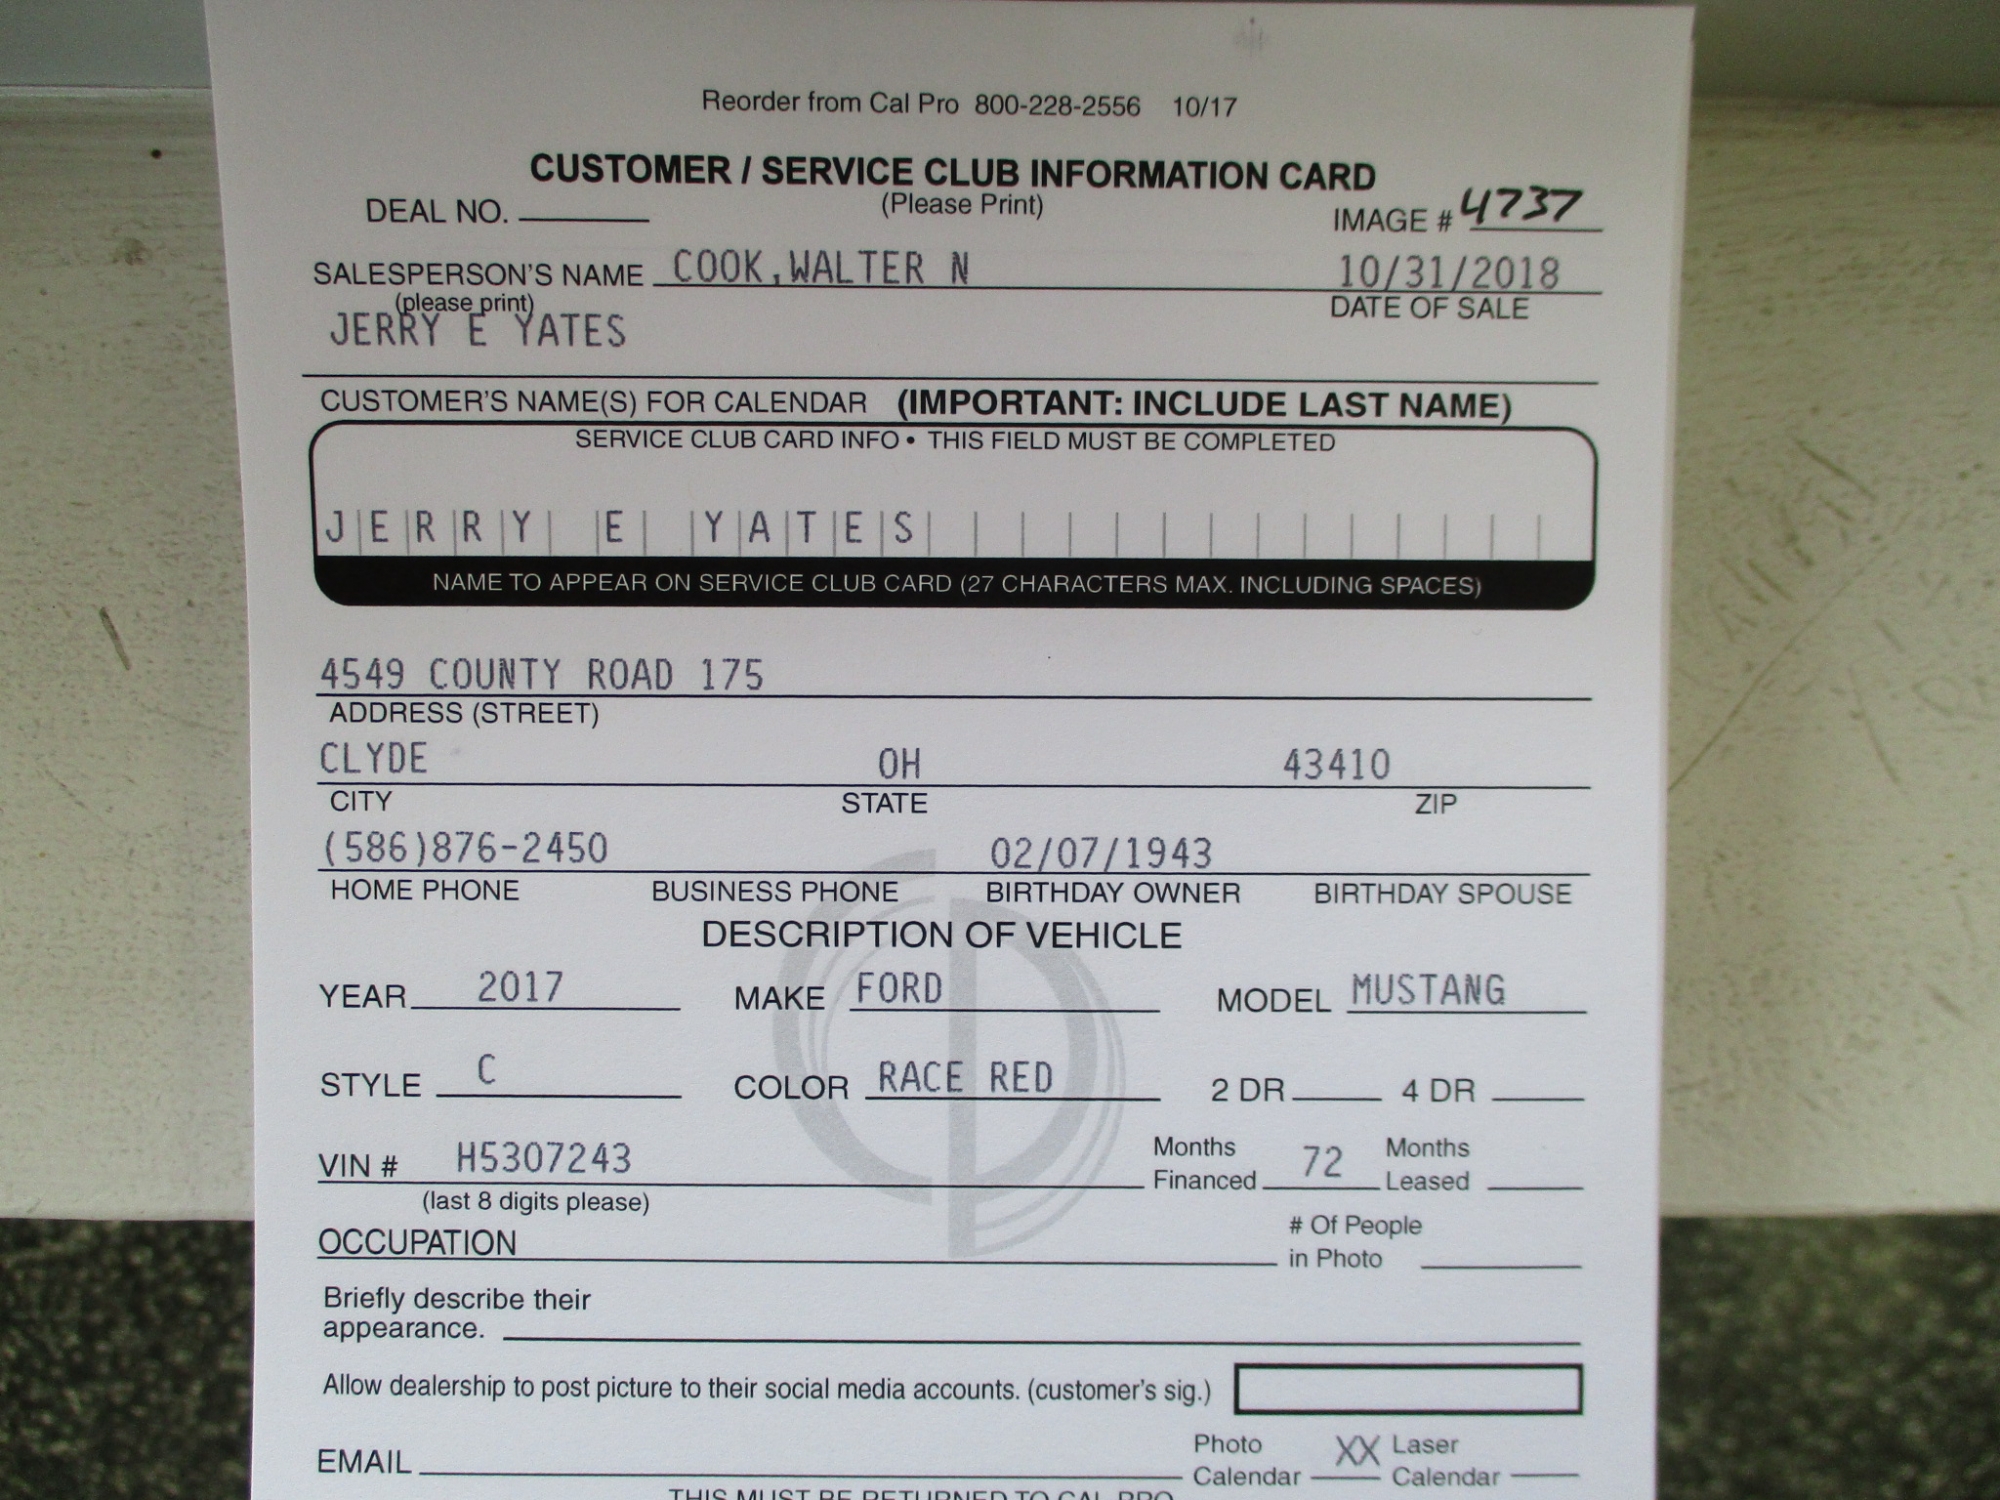 Reorder from Cal Pro 800-228-2556 10/17
CUSTOMER / SERVICE CLUB INFORMATION CARD
(Please Print)
DEAL NO. IMAGE # 4737
SALESPERSON'S NAME COOK,WALTER N 10/31/2018
(please print) DATE OF SALE
JERRY E YATES
CUSTOMER'S NAME(S) FOR CALENDAR (IMPORTANT: INCLUDE LAST NAME)
SERVICE CLUB CARD INFO • THIS FIELD MUST BE COMPLETED
JERRY E YATES
NAME TO APPEAR ON SERVICE CLUB CARD (27 CHARACTERS MAX. INCLUDING SPACES)
4549 COUNTY ROAD 175
ADDRESS (STREET)
CLYDE OH 43410
CITY STATE ZIP
(586)876-2450 02/07/1943
HOME PHONE BUSINESS PHONE BIRTHDAY OWNER BIRTHDAY SPOUSE
DESCRIPTION OF VEHICLE
YEAR 2017 MAKE FORD MODEL MUSTANG
STYLE C COLOR RACE RED 2 DR 4 DR
VIN # H5307243 Months Financed 72 Months Leased
(last 8 digits please)
OCCUPATION # Of People in Photo
Briefly describe their
appearance.
Allow dealership to post picture to their social media accounts. (customer's sig.)
EMAIL Photo Calendar XX Laser Calendar
THIS MUST BE RETURNED TO CAL PRO